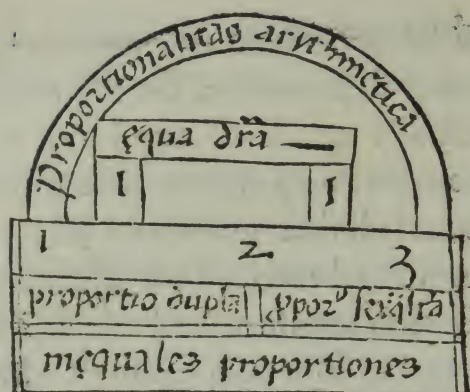 Proportionalitas arithmetica
ęqua dr̃a
1 1
1 2 3
proportio dupla ꝓpor° sexq̃ltã
inęquales proportiones